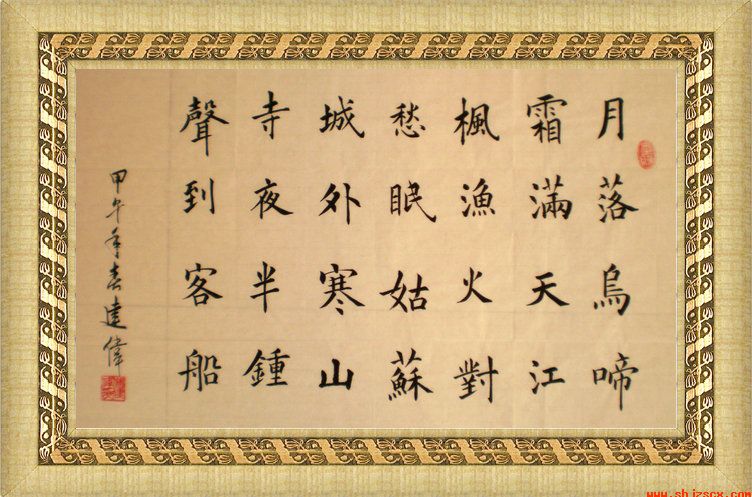 月落烏啼
霜滿天江
楓漁火對
愁眠姑蘇
城外寒山
寺夜半鍾
聲到客船
甲午年春達偉
www.shjzscx.com